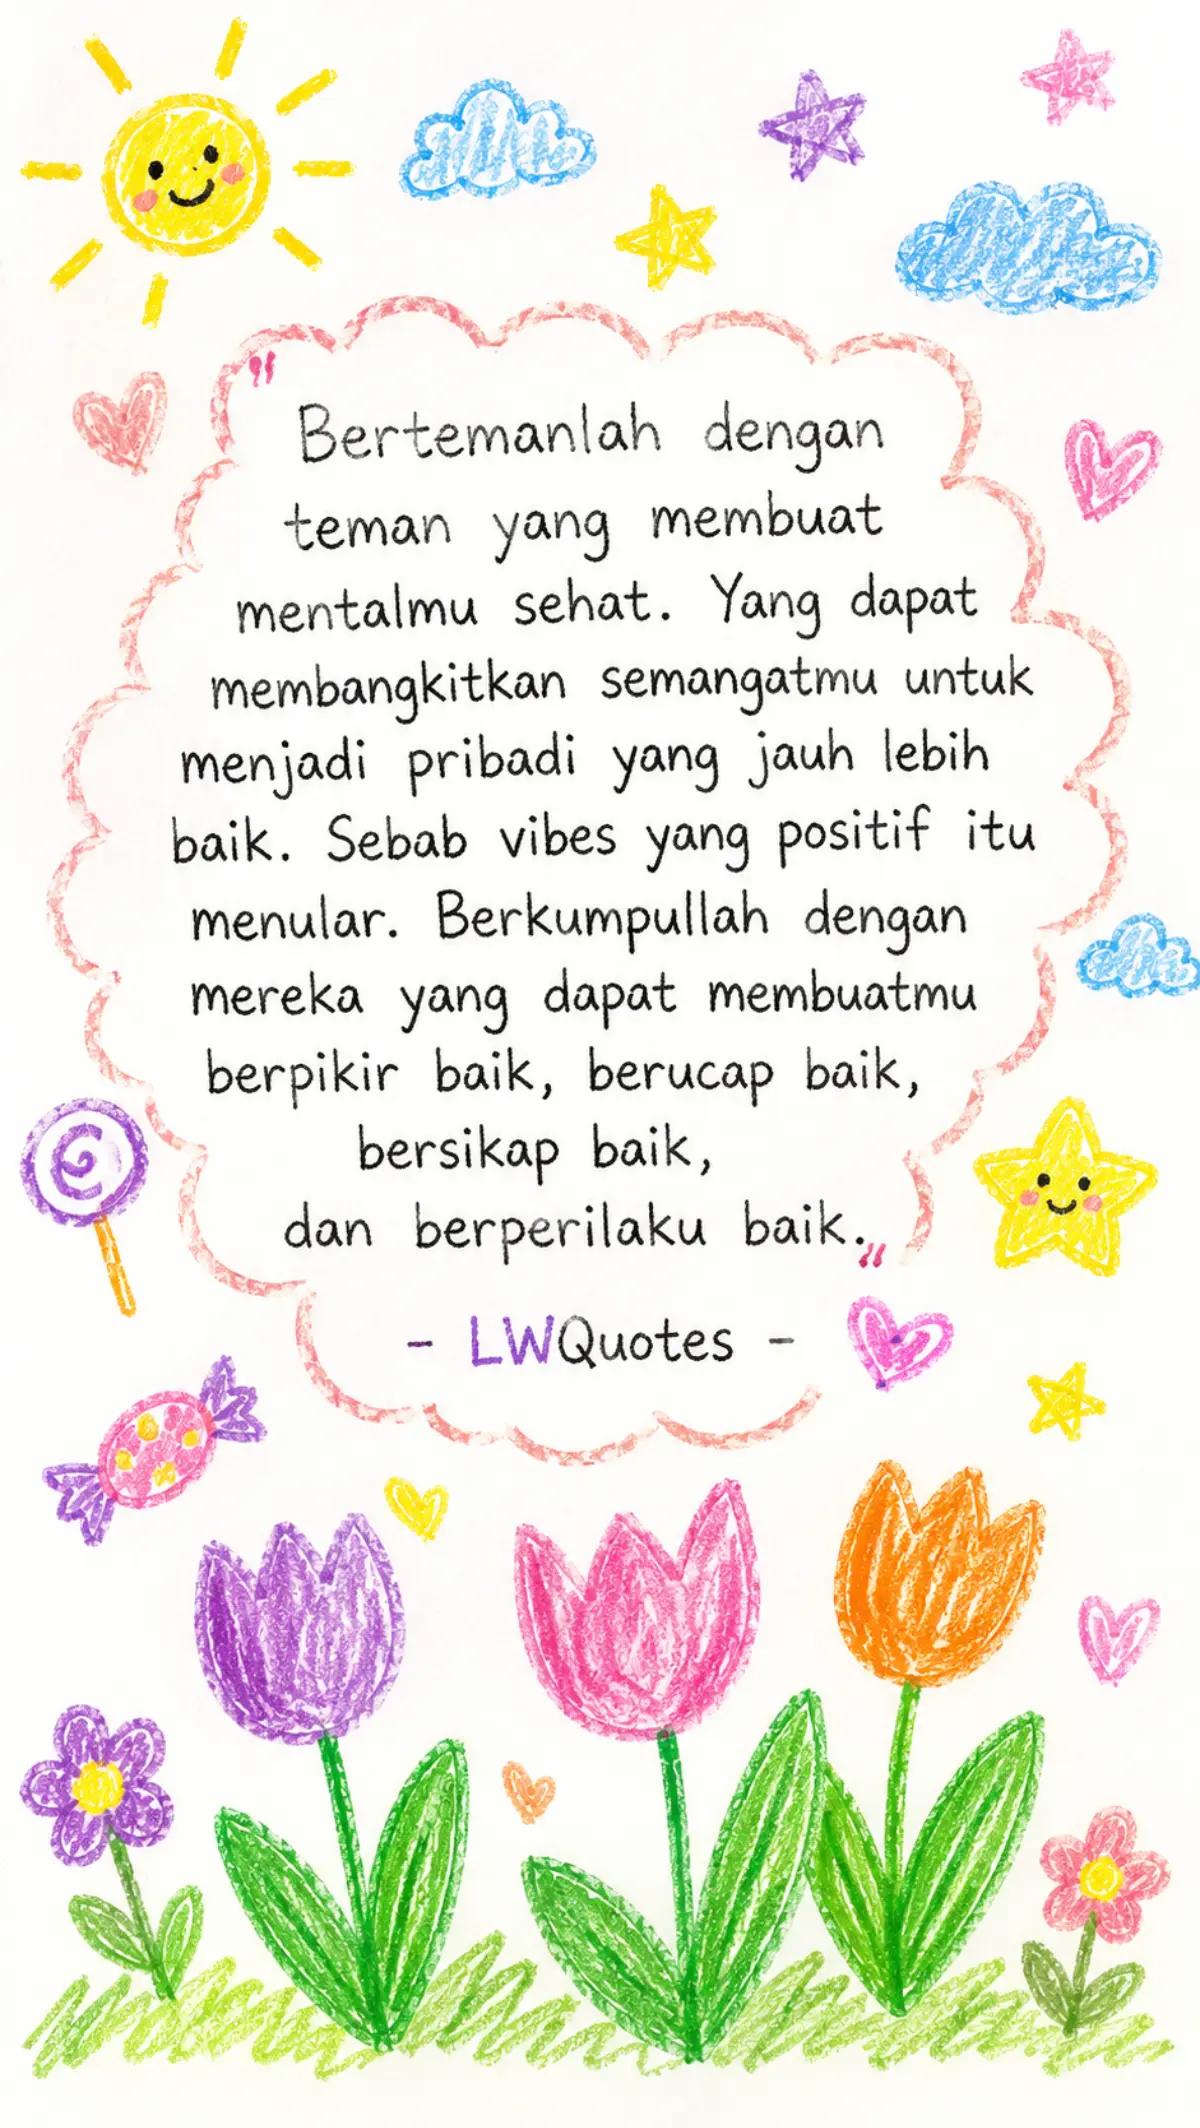 "
Bertemanlah dengan
teman yang membuat
mentalmu sehat. Yang dapat
membangkitkan semangatmu untuk
menjadi pribadi yang jauh lebih
baik. Sebab vibes yang positif itu
menular. Berkumpullah dengan
mereka yang dapat membuatmu
berpikir baik, berucap baik,
bersikap baik,
dan berperilaku baik."
- LWQuotes -